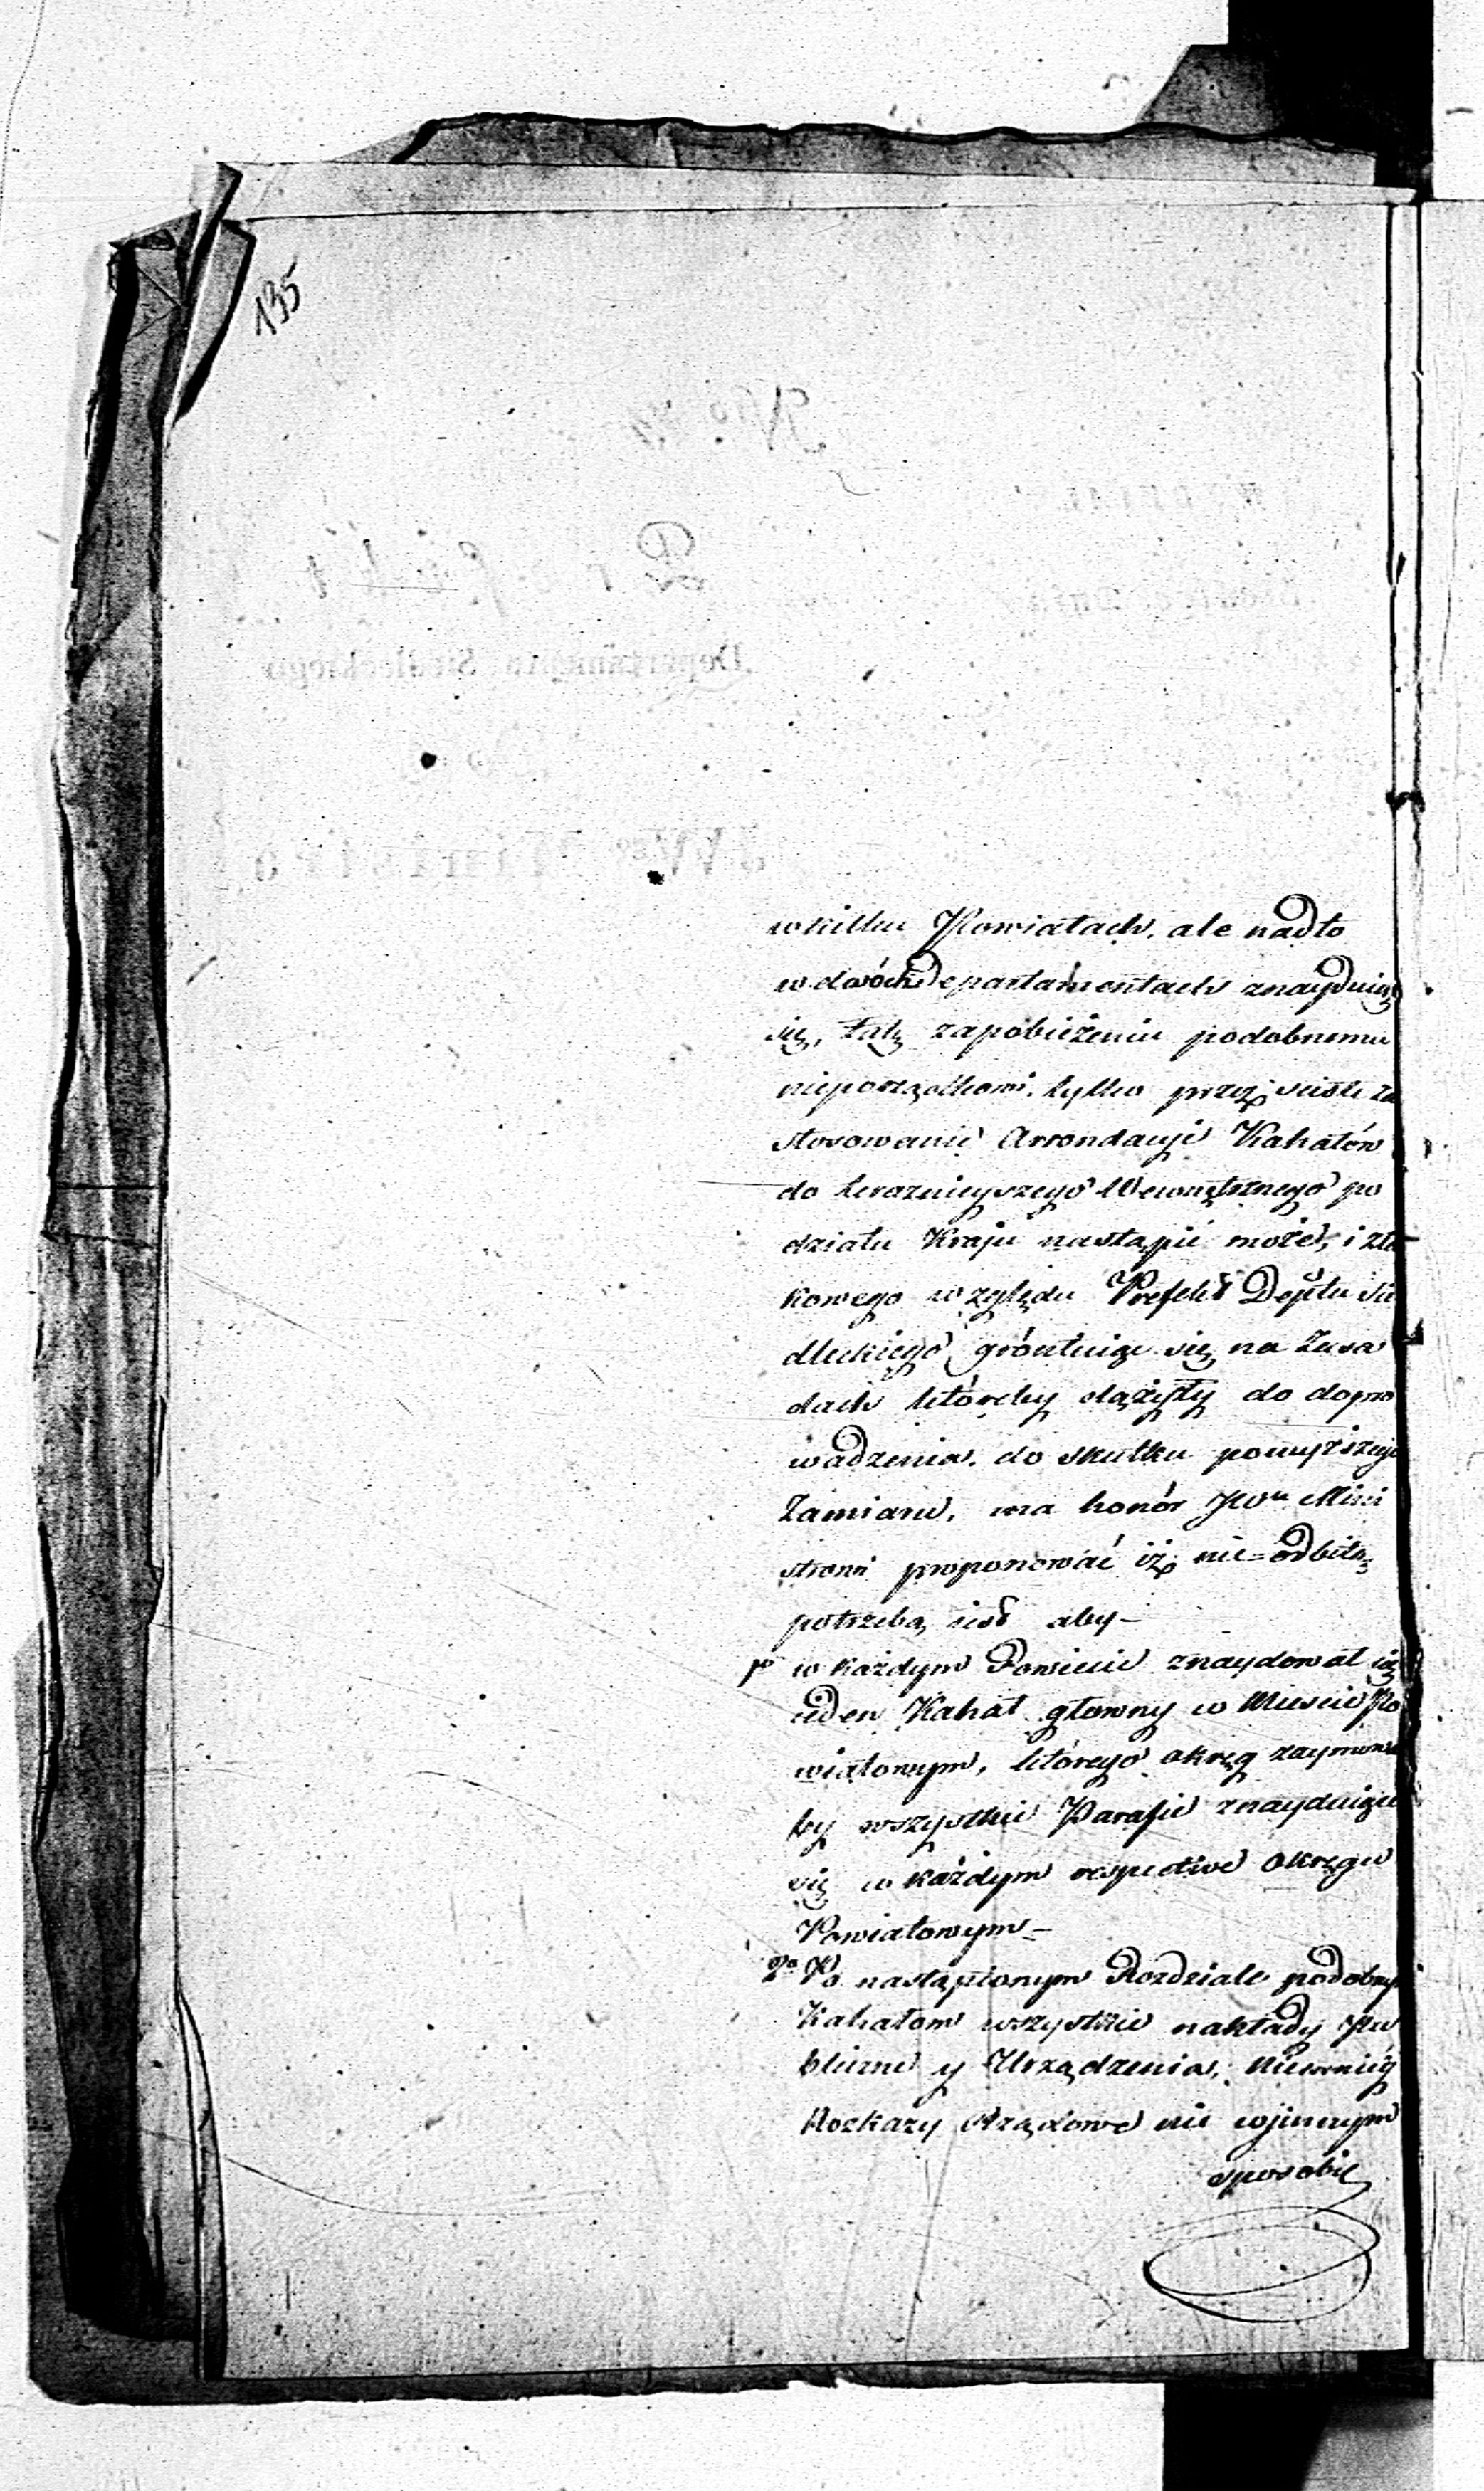 135
w kilku Powiatach. ale nadto
w dwóch Departamentach znayduią
się, tak zapobieżeniu podobnemu
nieporządkowi. tylko przez scisłe za
stosowanie Arrondacyi Kahałów
do teraznieyszego Wewnętrznego po
działu Kraju nastąpić może, i z ta
kowego względu Prefekt Deptu Sie
dleckiego gróntuiąc się na Zasa
dach któreby dążyły do dopro
wadzenia. do skutku powyższego
Zamiaru, ma honór JWu Mini
strowi proponować iż nie=odbitą
potrzebą iest aby—
1o w każdym Powiecie znaydował się
ieden Kahał głowny w Miescie Po
wiatowym, którego okręg zaymował
by wszystkie Parafie znayduiące
się w każdym respective Okręgu
Powiatowym—
2o Po nastąpionym Rozdziale podobnym
Kahałom wszystkie nakłady Pu
bliczne y Urządzenia, niemniéy
Rozkazy Rządowe nie w jinnym
sposobie